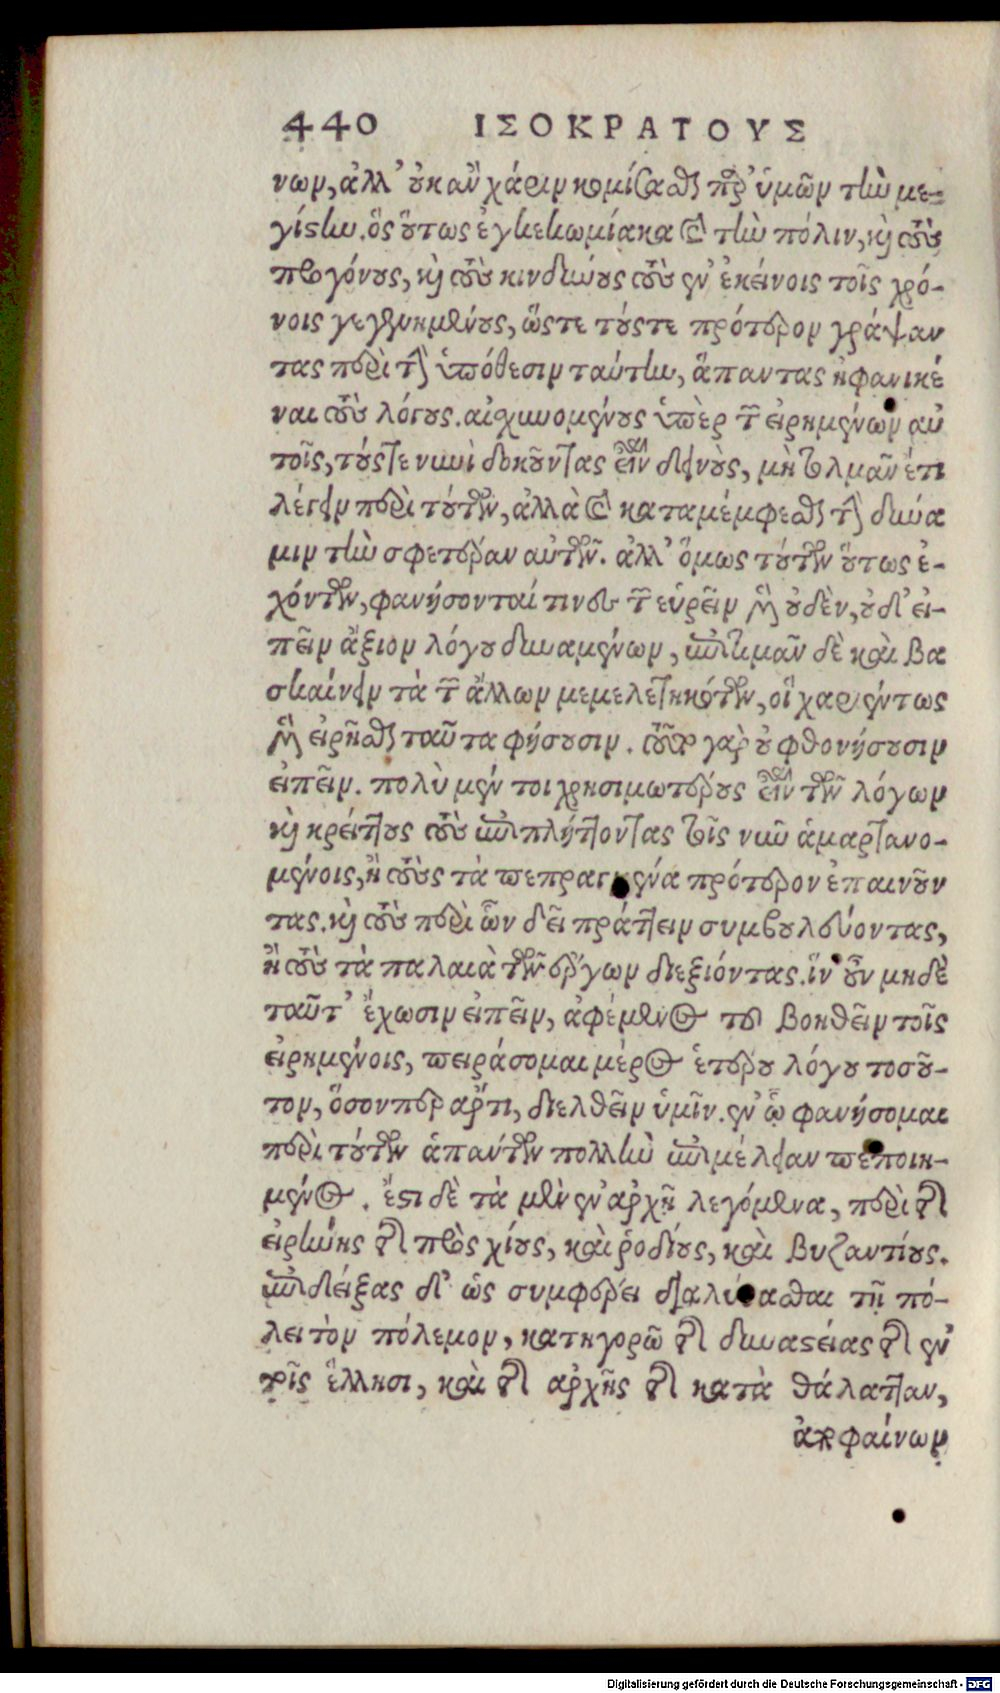 440 ΙΣΟΚΡΑΤΟΥΣ
νων, ἀλλ' οὐκ ἂν χάριν κομίσασθαι παρ' ὑμῶν τὴν με-
γίστην. ὃς οὕτως ἐγκεκωμίακα καὶ τὴν πόλιν, καὶ τοὺς
προγόνους, καὶ τοὺς κινδύνους τοὺς ἐν ἐκείνοις τοῖς χρό-
νοις γεγενημένους, ὥστε τούς τε πρότερον γράψαν
τας περὶ τὴν ὑπόθεσιν ταύτην, ἅπαντας ἠφανικέ
ναι τοὺς λόγους. αἰσχυνομένους ὑπὲρ τῶν εἰρημένων αὐ
τοῖς, τούς τε νυνὶ δοκοῦντας εἶναι δεινοὺς, μὴ τολμᾶν ἔτι
λέγειν περὶ τούτων, ἀλλὰ καὶ καταμέμφεσθαι τὴν δύνα
μιν τὴν σφετέραν αὐτῶν. ἀλλ' ὅμως τούτων οὕτως ἐ-
χόντων, φανήσονταί τινες τῶν εὑρεῖν μὲν οὐδὲν, οὐδ' εἰ-
πεῖν ἄξιον λόγου δυναμένων, ἐπιτιμᾶν δὲ καὶ βα
σκαίνειν τὰ τῶν ἄλλων μεμελετηκότων, οἳ χαριέντως
μὲν εἰρῆσθαι ταῦτα φήσουσιν. τὸ γὰρ εὖ φθονήσουσιν
εἰπεῖν. πολὺ μέν τοι χρησιμωτέρους εἶναι τῶν λόγων
καὶ κρείττους τοὺς ἐπιπλήττοντας τοῖς νῦν ἁμαρτανο-
μένοις, ἢ τοὺς τὰ πεπραγμένα πρότερον ἐπαινοῦν
τας. καὶ τοὺς περὶ ὧν δεῖ πράττειν συμβουλεύοντας,
ἢ τοὺς τὰ παλαιὰ τῶν ἔργων διεξιόντας. ἵν' οὖν μηδὲ
ταῦτ' ἔχωσιν εἰπεῖν, ἀφέμενος τοῦ βοηθεῖν τοῖς
εἰρημένοις, πειράσομαι μέρος ἑτέρου λόγου τοσοῦ-
τον, ὅσον περ ἄρτι, διελθεῖν ὑμῖν. ἐν ᾧ φανήσομαι
περὶ τούτων ἁπάντων πολλὴν ἐπιμέλειαν πεποιη-
μένος. ἔστι δὲ τὰ μὲν ἐν ἀρχῇ λεγόμενα, περὶ τῆς
εἰρήνης τῆς πρὸς χίους, καὶ ῥοδίους, καὶ βυζαντίους.
ἐπιδείξας δ' ὡς συμφέρει διαλύσασθαι τῇ πό-
λει τὸν πόλεμον, κατηγορῶ τῆς δυναστείας τῆς ἐν
τοῖς ἕλλησι, καὶ τῆς ἀρχῆς τῆς κατὰ θάλατταν,
ἀποφαίνων
Digitalisierung gefördert durch die Deutsche Forschungsgemeinschaft - DFG